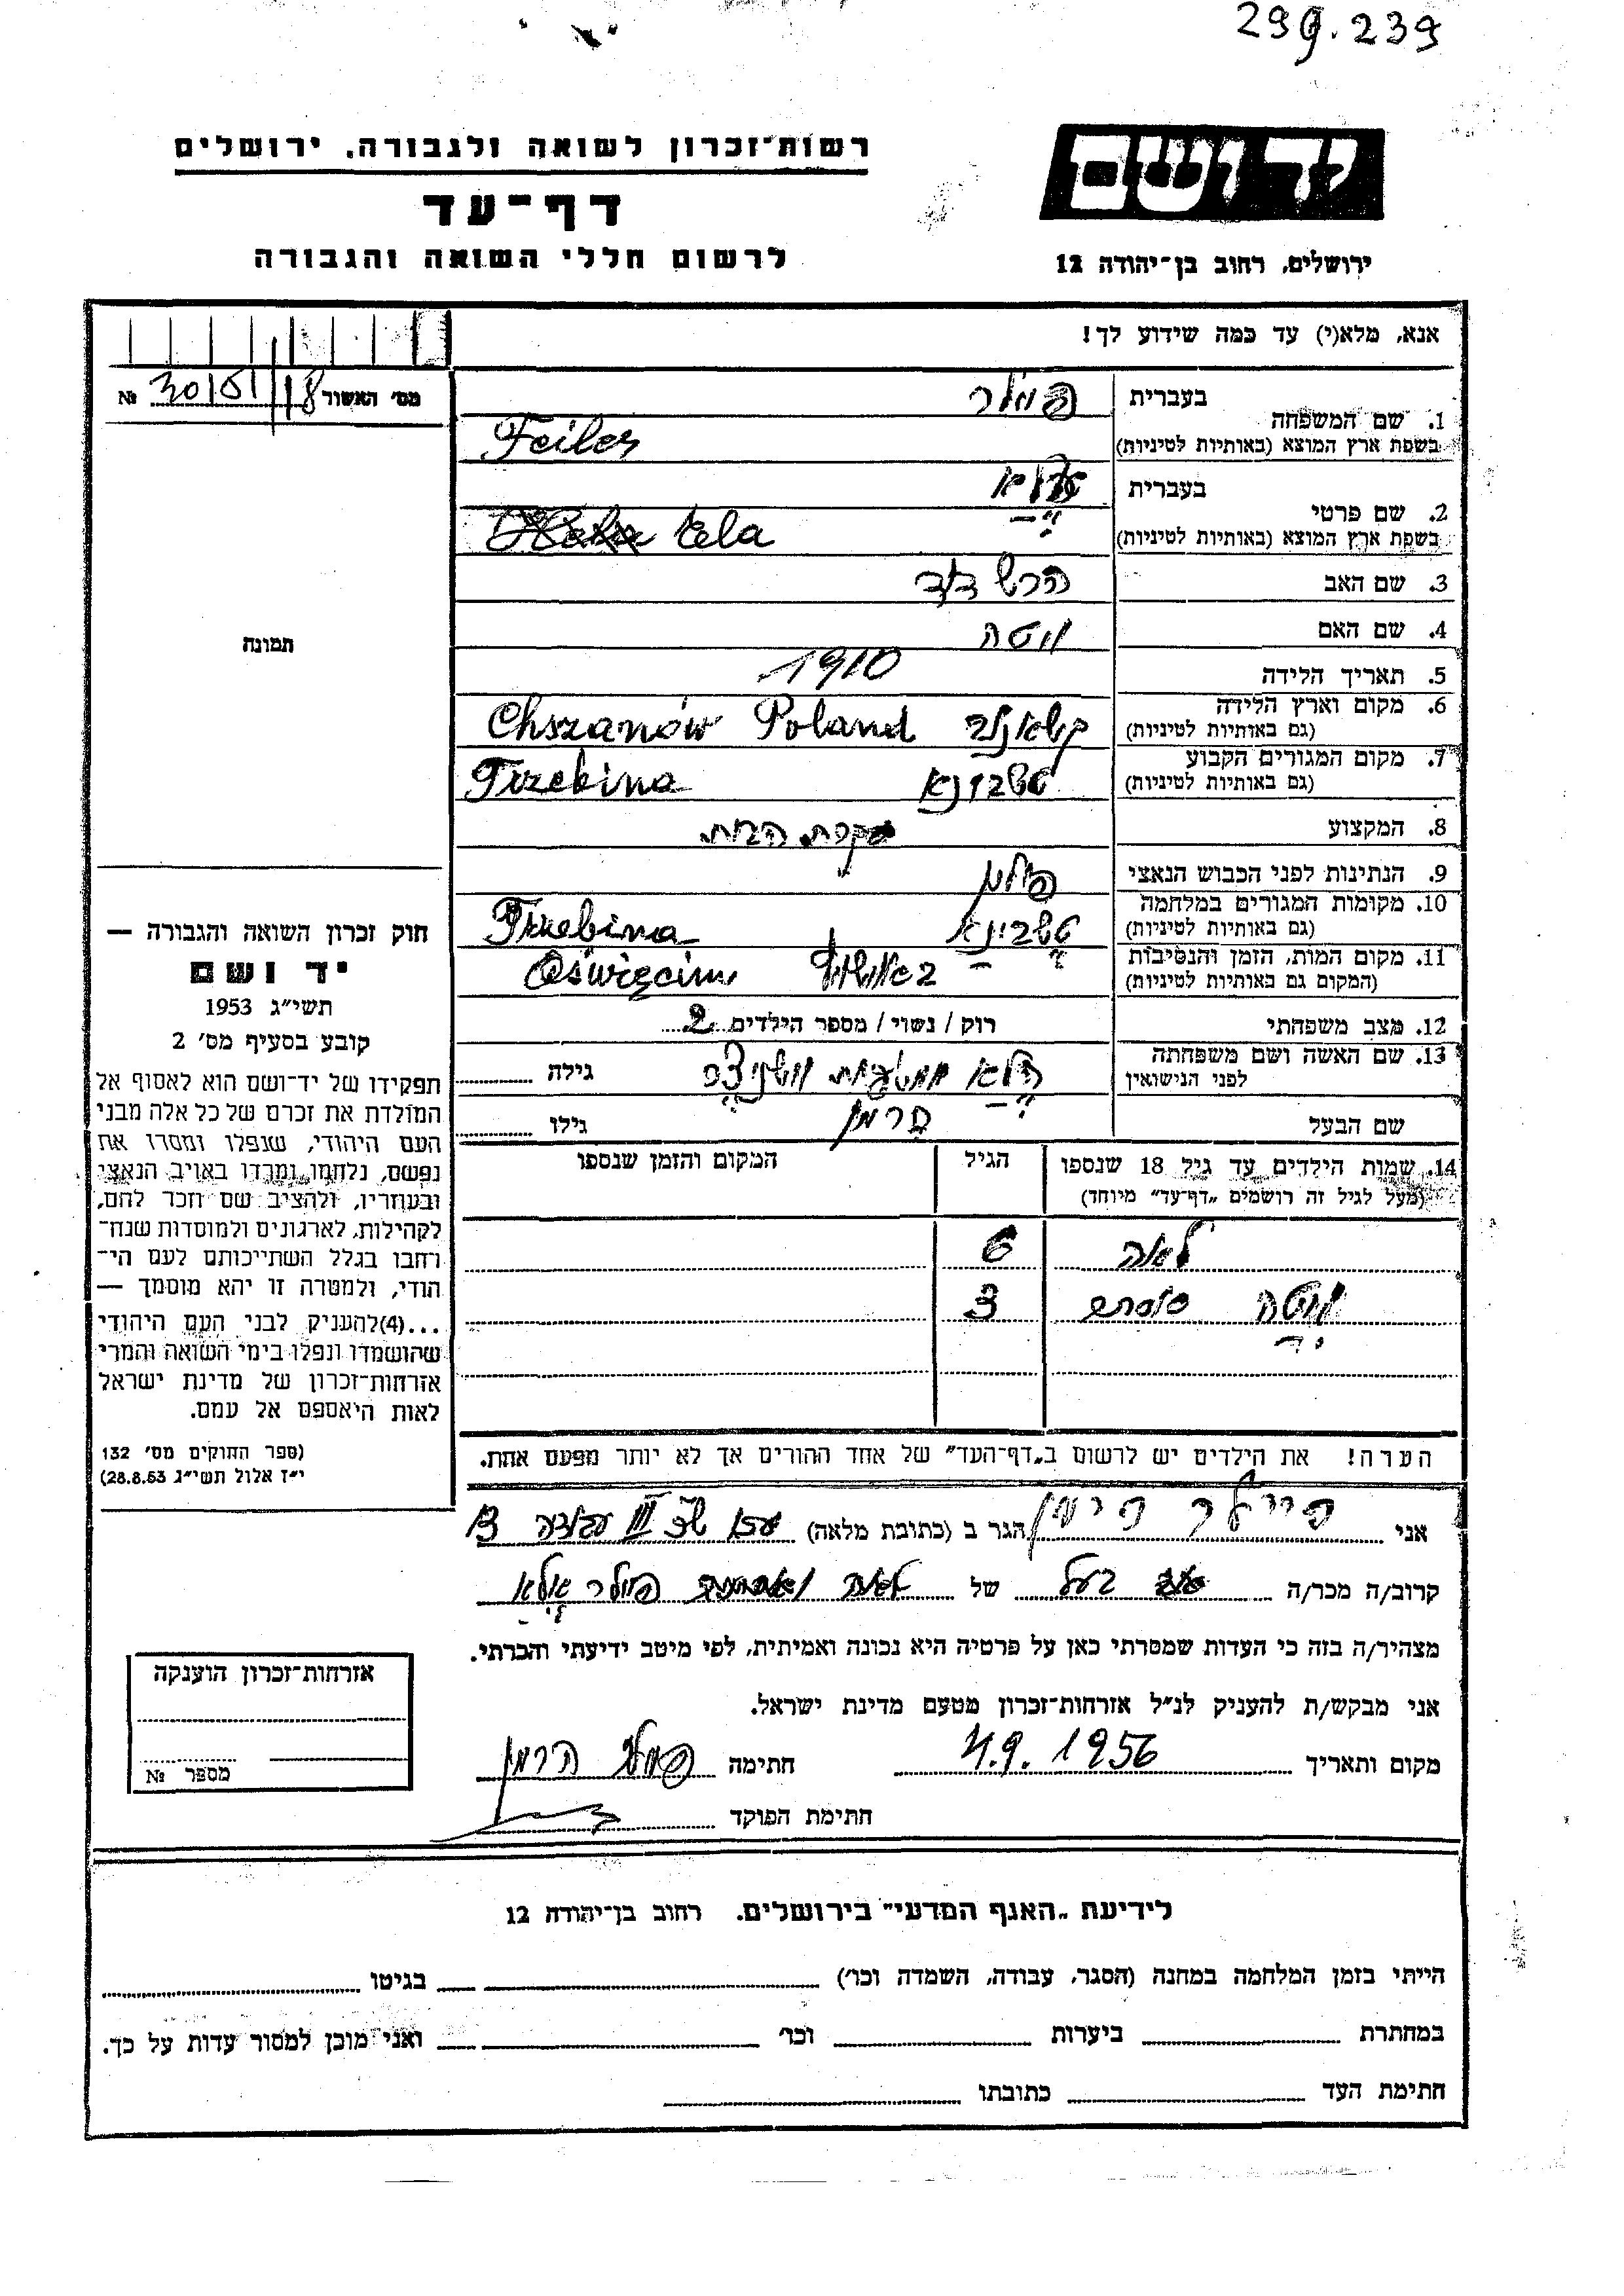 299.239
רשות־זכרון לשואה ולגבורה, ירושלים
יד ושם
דף־עד
לרשום חללי השואה והגבורה
ירושלים, רחוב בן־יהודה 12
אנא, מלא(י) עד כמה שידוע לך!
מס׳ האשור № 30/51/18
1. שם המשפחה בעברית פיילר
בשפת ארץ המוצא (באותיות לטיניות) Feiler
2. שם פרטי בעברית
בשפת ארץ המוצא (באותיות לטיניות) Ela
3. שם האב הרש דוד
4. שם האם
5. תאריך הלידה 1910
6. מקום וארץ הלידה
(גם באותיות לטיניות) Chszanów Poland
7. מקום המגורים הקבוע
(גם באותיות לטיניות) Trzebina
8. המקצוע עקרת הבית
9. הנתינות לפני הכבוש הנאצי פולין
10. מקומות המגורים במלחמה
(גם באותיות לטיניות) Trzebina
11. מקום המות, הזמן והנסיבות
(המקום גם באותיות לטיניות) Oświęcim
12. מצב משפחתי רוק / נשוי / מספר הילדים 2
13. שם האשה ושם משפחתה
לפני הנישואין גילה
שם הבעל הרמן גילו
14. שמות הילדים עד גיל 18 שנספו הגיל המקום והזמן שנספו
(מעל לגיל זה רושמים „דף־עד” מיוחד)
לאה 6
3
הערה! את הילדים יש לרשום ב„דף־העד” של אחד ההורים אך לא יותר מפעם אחת.
אני פיילר הרמן הגר ב (כתובת מלאה)
קרוב/ה מכר/ה בעל של פיילר אלא
מצהיר/ה בזה כי העדות שמסרתי כאן על פרטיה היא נכונה ואמיתית, לפי מיטב ידיעתי והכרתי.
אני מבקש/ת להעניק לנ״ל אזרחות־זכרון מטעם מדינת ישראל.
מקום ותאריך 4.9.1956 חתימה פיילר הרמן
חתימת הפוקד
תמונה
חוק זכרון השואה והגבורה —
יד ושם
תשי״ג 1953
קובע בסעיף מס׳ 2
תפקידו של יד־ושם הוא לאסוף אל
המולדת את זכרם של כל אלה מבני
העם היהודי, שנפלו ומסרו את
נפשם, נלחמו ומרדו באויב הנאצי
ובעוזריו, ולהציב שם וזכר להם,
לקהילות, לארגונים ולמוסדות שנח־
רחבו בגלל השתייכותם לעם הי־
הודי, ולמטרה זו יהא מוסמך —
...(4)להעניק לבני העם היהודי
שהושמדו ונפלו בימי השואה והמרי
אזרחות־זכרון של מדינת ישראל
לאות היאספם אל עמם.
(ספר החוקים מס׳ 132
י״ז אלול תשי״ג 28.8.53)
אזרחות־זכרון הוענקה
מספר №
לידיעת „האגף המדעי” בירושלים, רחוב בן־יהודה 12
הייתי בזמן המלחמה במחנה (הסגר, עבודה, השמדה וכו׳) בגיטו
במחתרת ביערות וכו׳ ואני מוכן למסור עדות על כך.
חתימת העד כתובתו